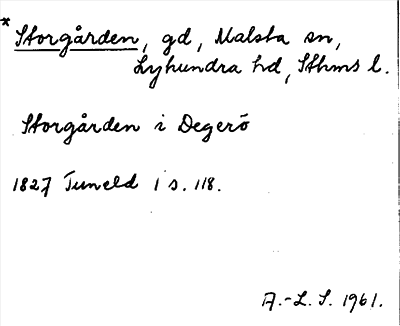 * Storgården, gd, Malsta sn,
Lyhundra hd, Sthms l.
Storgården i Degerö
1827 Tuneld 1 s. 118.
A.-L. S. 1961.